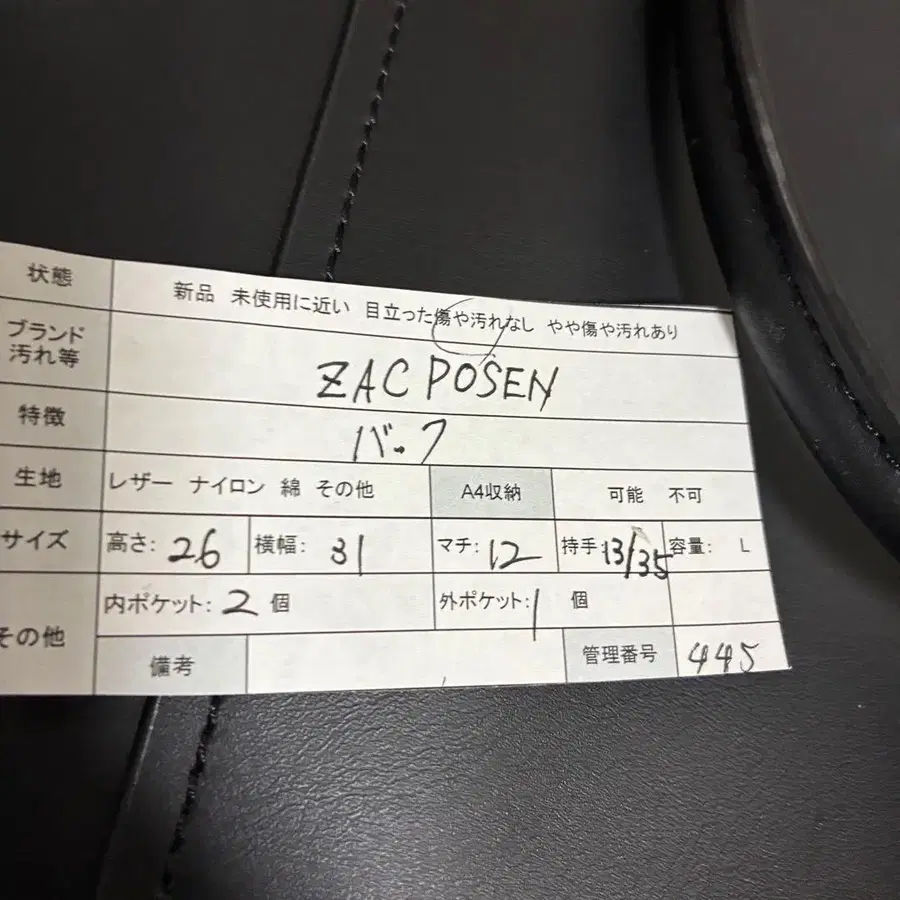 状態 新品 未使用に近い 目立った傷や汚れなし やや傷や汚れあり
ブランド
汚れ等 ZAC POSEN
特徴 バッグ
生地 レザー ナイロン 綿 その他 A4収納 可能 不可
サイズ 高さ: 26 横幅: 31 マチ: 12 持手: 13/35 容量: L
その他 内ポケット: 2 個 外ポケット: 1 個
備考 管理番号 445